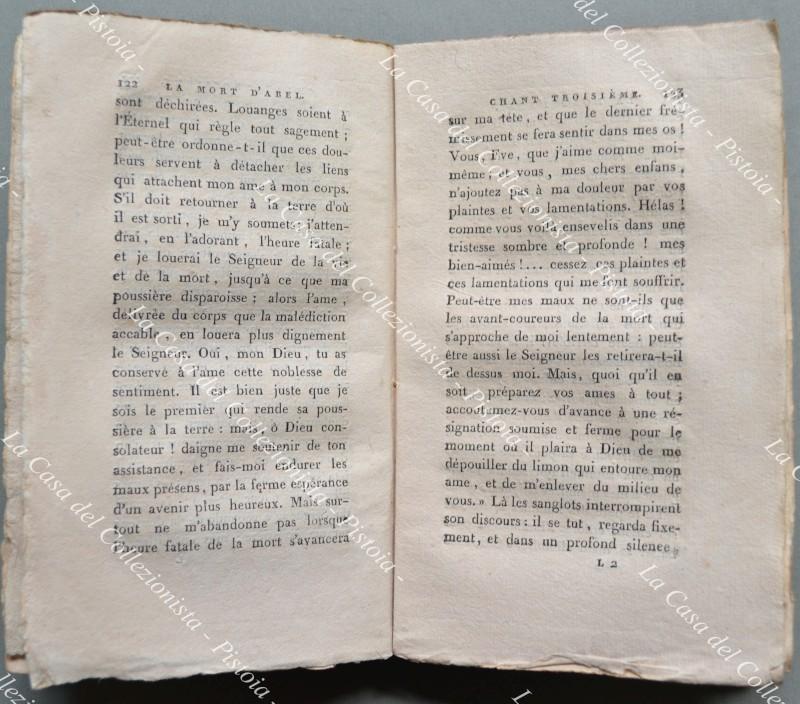 122 LA MORT D'ABEL.
sont déchirées. Louanges soient à
l'Éternel qui règle tout sagement ;
peut-être ordonne-t-il que ces dou-
leurs servent à détacher les liens
qui attachent mon ame à mon corps.
S'il doit retourner à la terre d'où
il est sorti, je m'y soumets; j'atten-
drai, en l'adorant, l'heure fatale ;
et je louerai le Seigneur de la vie
et de la mort, jusqu'à ce que ma
poussière disparoisse : alors l'ame,
délivrée du corps que la malédiction
accable, en louera plus dignement
le Seigneur. Oui, mon Dieu, tu as
conservé à l'ame cette noblesse de
sentiment. Il est bien juste que je
sois le premier qui rende sa pous-
sière à la terre : mais, ô Dieu con-
solateur ! daigne me soutenir de ton
assistance, et fais-moi endurer les
maux présens, par la ferme espérance
d'un avenir plus heureux. Mais sur-
tout ne m'abandonne pas lorsque
l'heure fatale de la mort s'avancera
CHANT TROISIÈME. 123
sur ma tête, et que le dernier fré-
missement se fera sentir dans mes os !
Vous, Eve, que j'aime comme moi-
même, et vous, mes chers enfans,
n'ajoutez pas à ma douleur par vos
plaintes et vos lamentations. Hélas !
comme vous voilà ensevelis dans une
tristesse sombre et profonde ! mes
bien-aimés !... cessez ces plaintes et
ces lamentations qui me font souffrir.
Peut-être mes maux ne sont-ils que
les avant-coureurs de la mort qui
s'approche de moi lentement : peut-
être aussi le Seigneur les retirera-t-il
de dessus moi. Mais, quoi qu'il en
soit, préparez vos ames à tout ;
accoutumez-vous d'avance à une ré-
signation soumise et ferme pour le
moment où il plaira à Dieu de me
dépouiller du limon qui entoure mon
ame, et de m'enlever du milieu de
vous. » Là les sanglots interrompirent
son discours : il se tut, regarda fixe-
ment, et dans un profond silence,
L 2
La Casa del Collezionista - Pistoia -
La Casa del Collezionista - Pistoia -
La Casa del Collezionista - Pistoia -
La Casa del Collezionista